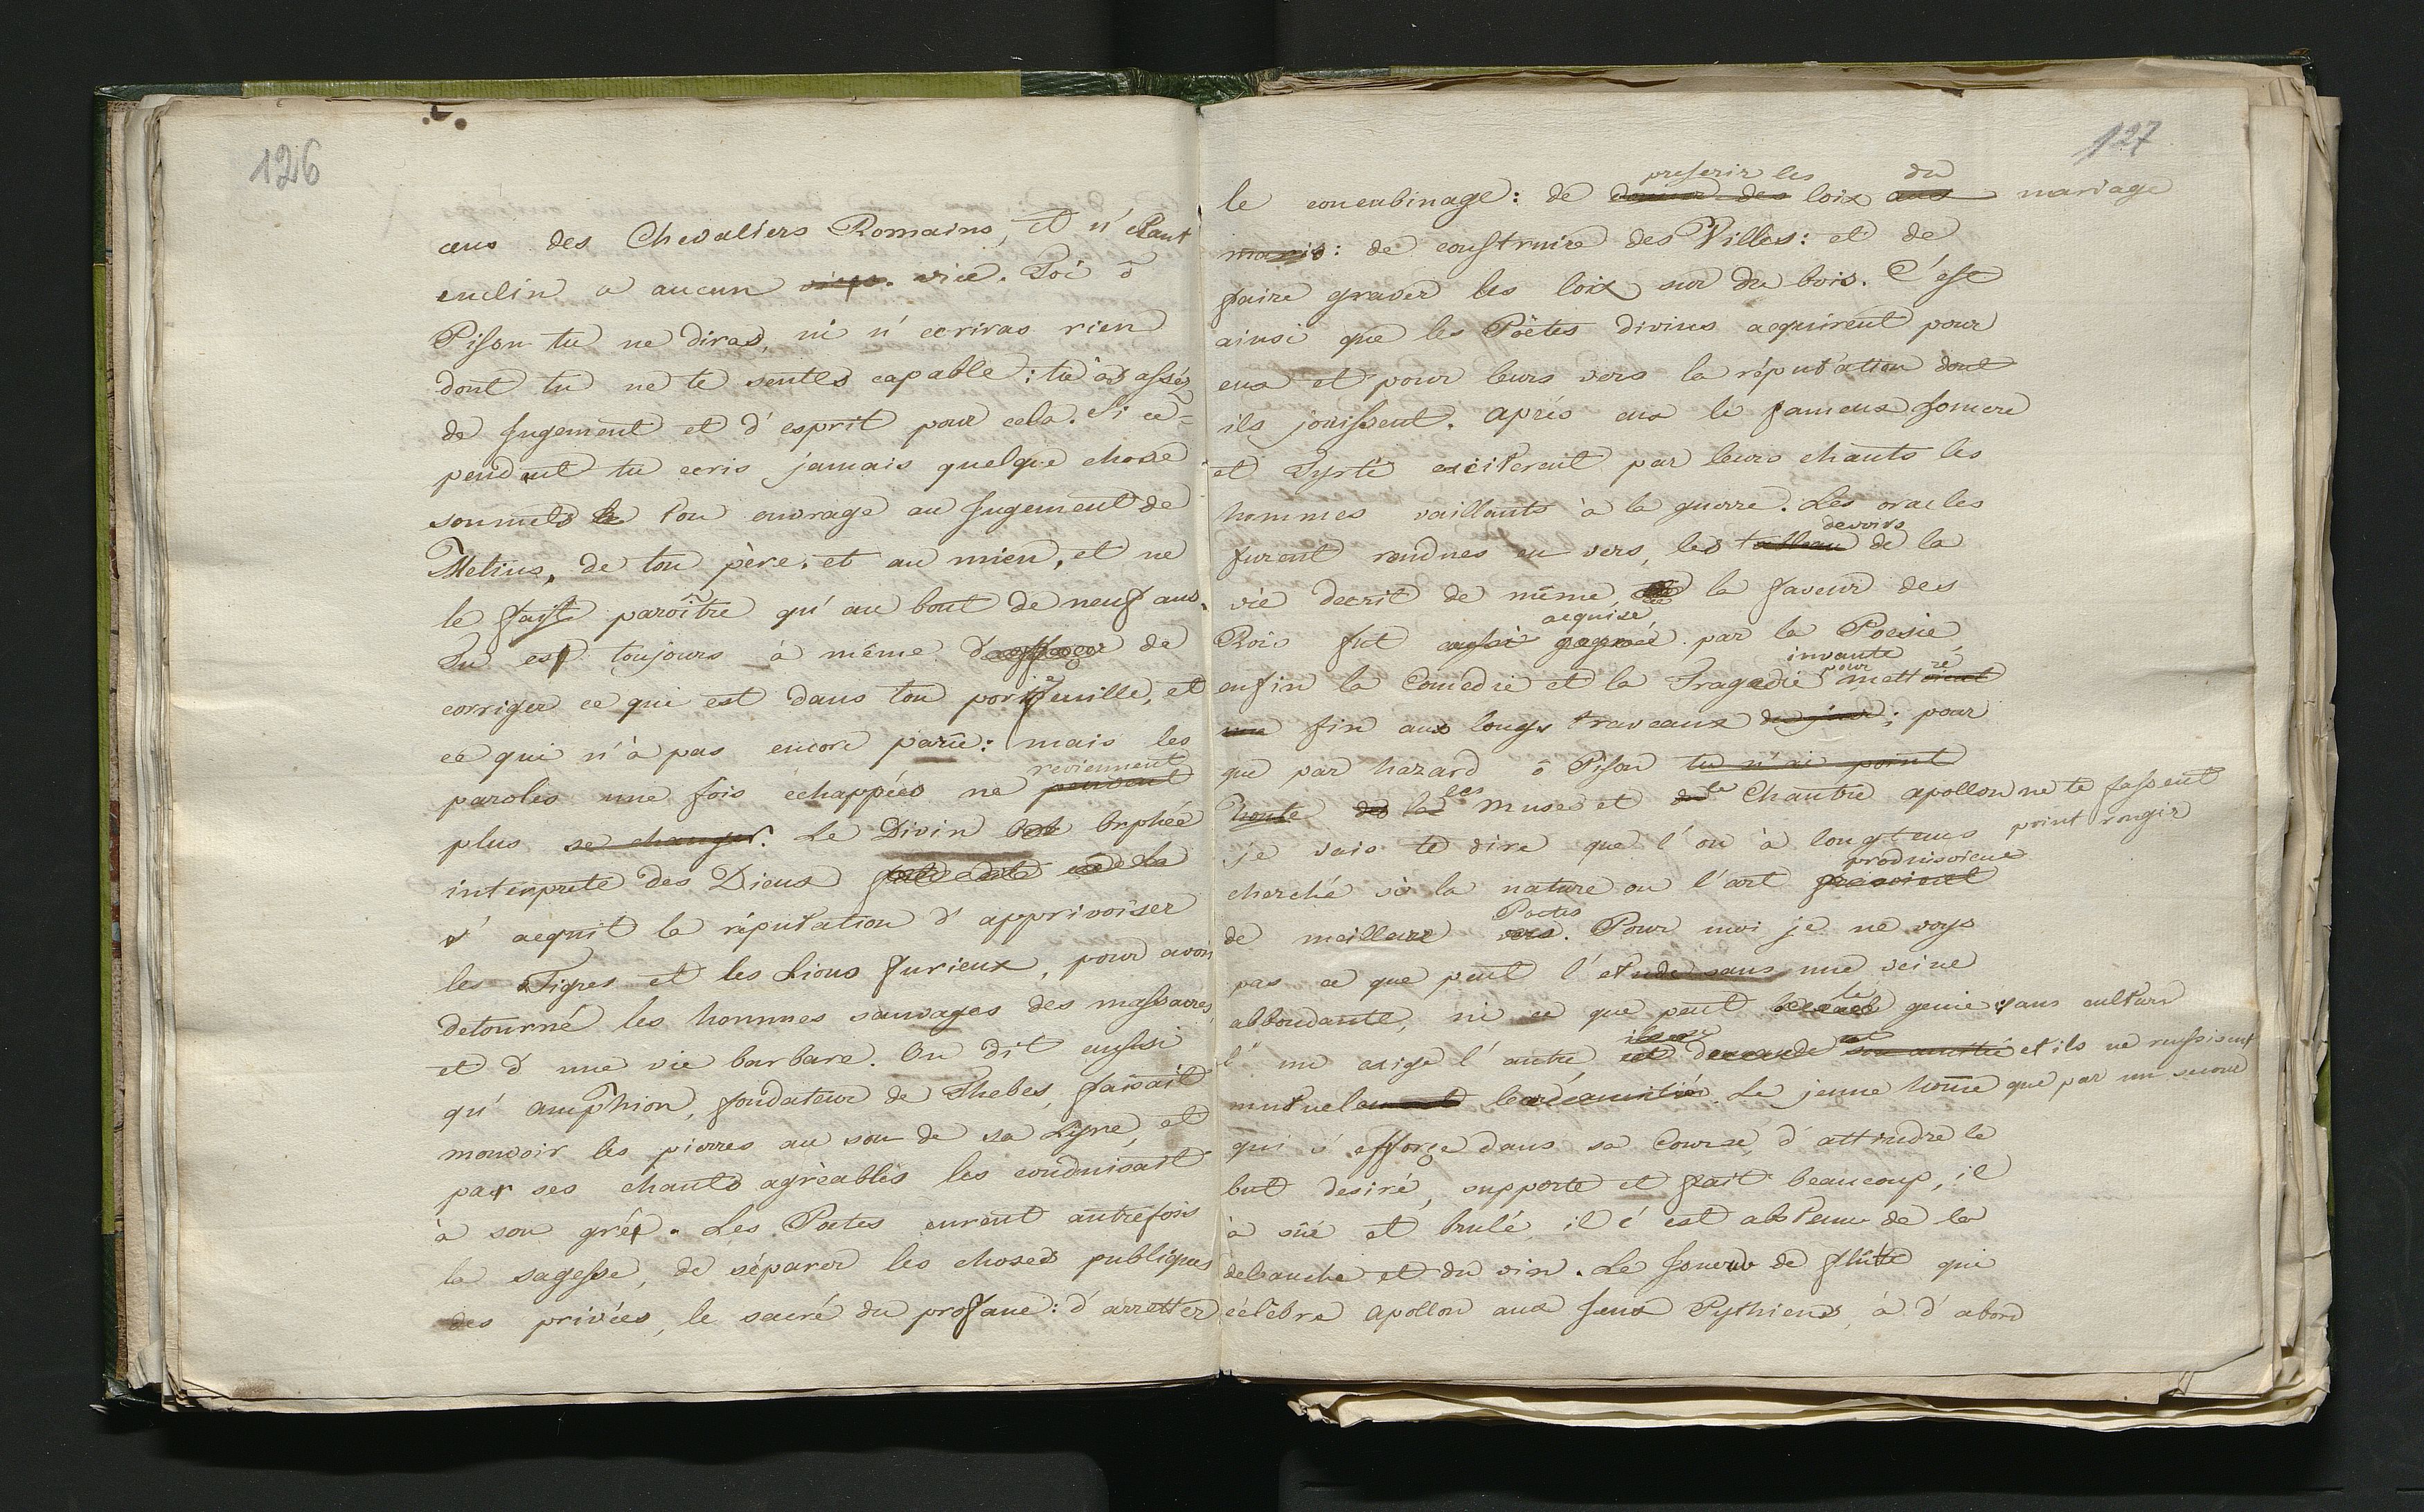 126
ceus des Chevaliers Romains, et n'étant
enclin a aucun vice. Toi ô
Pison tu ne diras, ni n'ecriras rien
dont tu ne te sentes capable : tu as assés
de jugement et d'esprit pour cela. Si ce=
pendant tu ecris jamais quelque chose
soumets le ton ouvrage au jugement de
Metius, de ton père, et au mien, et ne
le fais paroître qu'au bout de neuf ans.
Tu es toujours à même d'effacer de
corriger ce qui est dans ton portefeuille, et
ce qui n'à pas encore parû : mais les
reviennent
paroles une fois échappées ne peuvent
plus se changer. Le Divin Orphée
interprete des Dieus
s'acquit la réputation d'apprivoiser
les Tigres et les Lions furieux, pour avoir
detourné les hommes sauvages des massacres,
et d'une vie barbare. On dit aussi
qu'amphion, fondateur de Thebes, faisait
mouvoir les pierres au son de sa Lyre, et
par ses chants agréables les conduisait
à son gré. Les Poetes eurent autrefois
la sagesse, de séparer les choses publiques
des privées, le sacré du profane : d'arretter
127
prescrir les du
le concubinage : de donner des loix aux mariage
maris : de construire des Villes : et de
faire graver les loix sur du bois. C'est
ainsi que les Poëtes divins acquirent pour
eux et pour leurs vers la réputation dont
ils jouissent. Après eux le fameux homere
et Tyrté exciterent par leurs chants les
hommes vaillants à la guerre. Les oracles
devoirs
furent rendues en vers, les tableau de la
vie decrit de même, la faveur des
acquise
Rois fut aussi gagnée par la Poesie,
invante pour re
enfin la Comédie et la Tragedie mettoient
une fin aux longs traveaux du jour ; pour
que par hazard ô Pison tu n'ai point
honte des la les Muses et du le Chantre apollon ne te fassent
point rougir
je vais te dire que l'on à longtems
produisoient
cherché si la nature ou l'art
Poetes
de meilleur vers. Pour moi je ne voys
pas ce que peut l'etude sans une veine
le
abbondante, ni ce que peut genie sans culture
l'un exige l'autre, demande son amitié et ils ne reussisent
mutuelement leur amitié. Le jeune home que par un secour
qui s'efforçe dans sa Course, d'attindre le
but desiré, supporte et fait beaucoup, il
à sué et brulé, il s'est abstenu de la
debauche et du vin. Le joueur de flûte qui
célèbre apollon aux jeux Pythiens, à d'abord